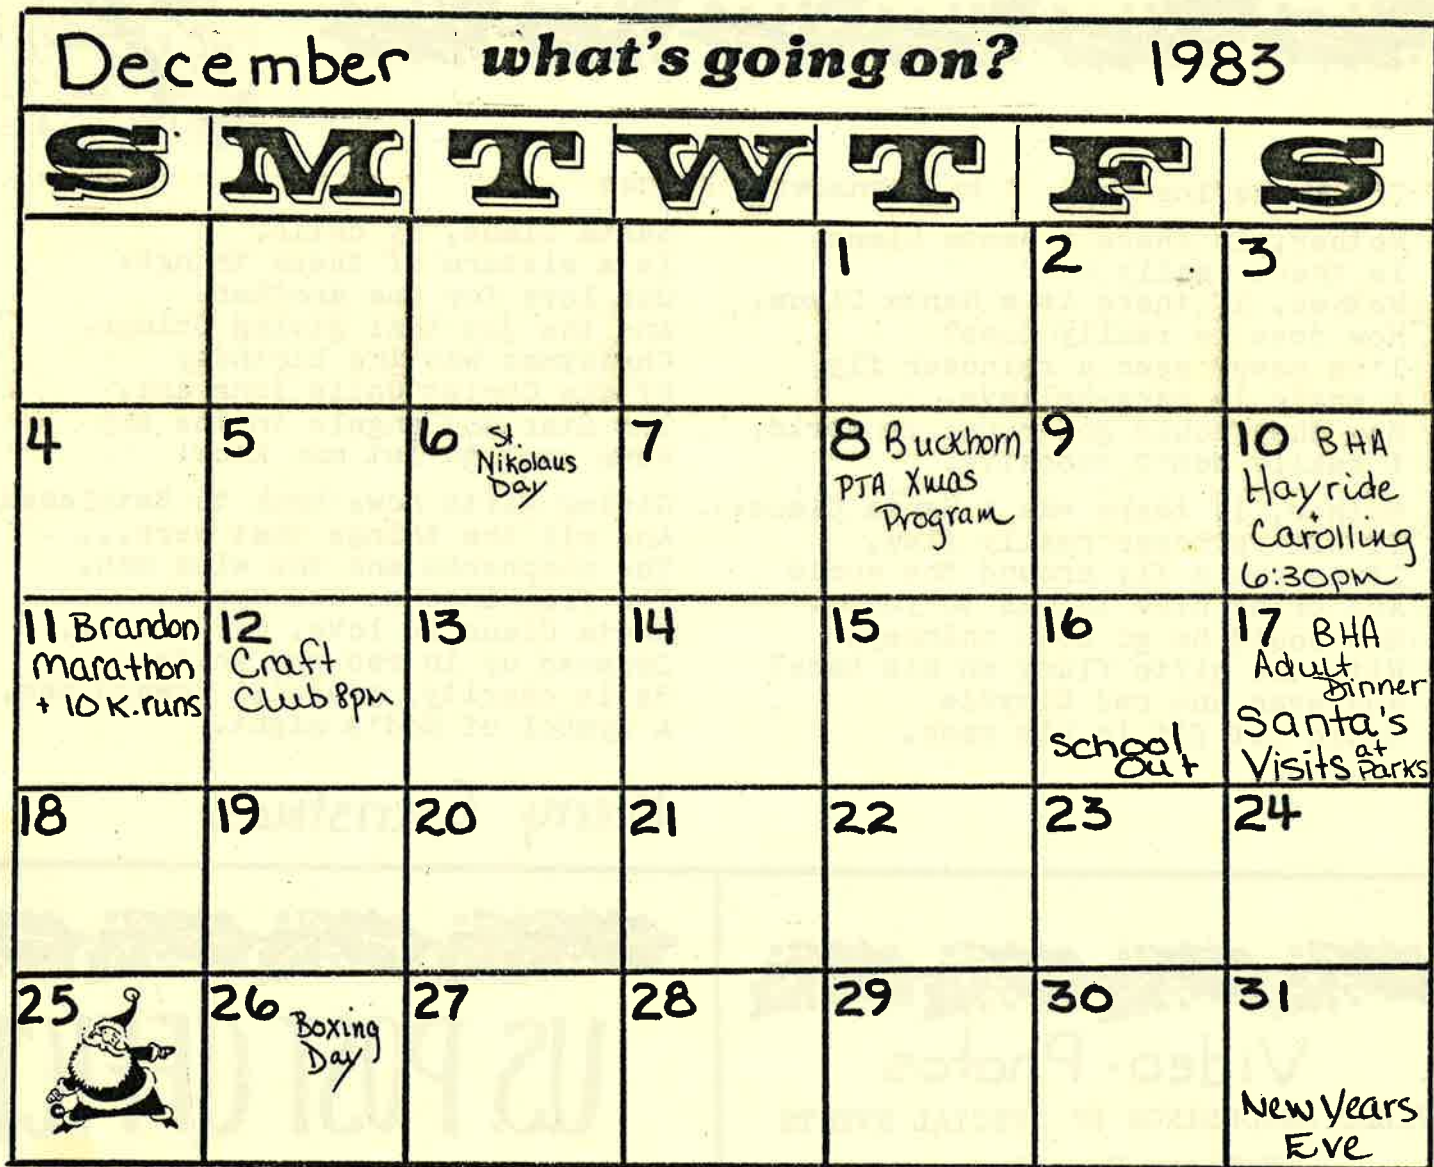 December what's going on? 1983
S M T W T F S
1 2 3
4 5 6 St.
Nikolaus
Day
7 8 Buckhorn
PTA Xmas
Program
9 10 BHA
Hayride
+
Carolling
6:30pm
11 Brandon
Marathon
+ 10K.runs
12
Craft
Club 8pm
13 14 15 16
School
Out
17 BHA
Adult
Dinner
Santa's
Visits at
Parks
18 19 20 21 22 23 24
25 26 Boxing
Day
27 28 29 30 31
New Years
Eve